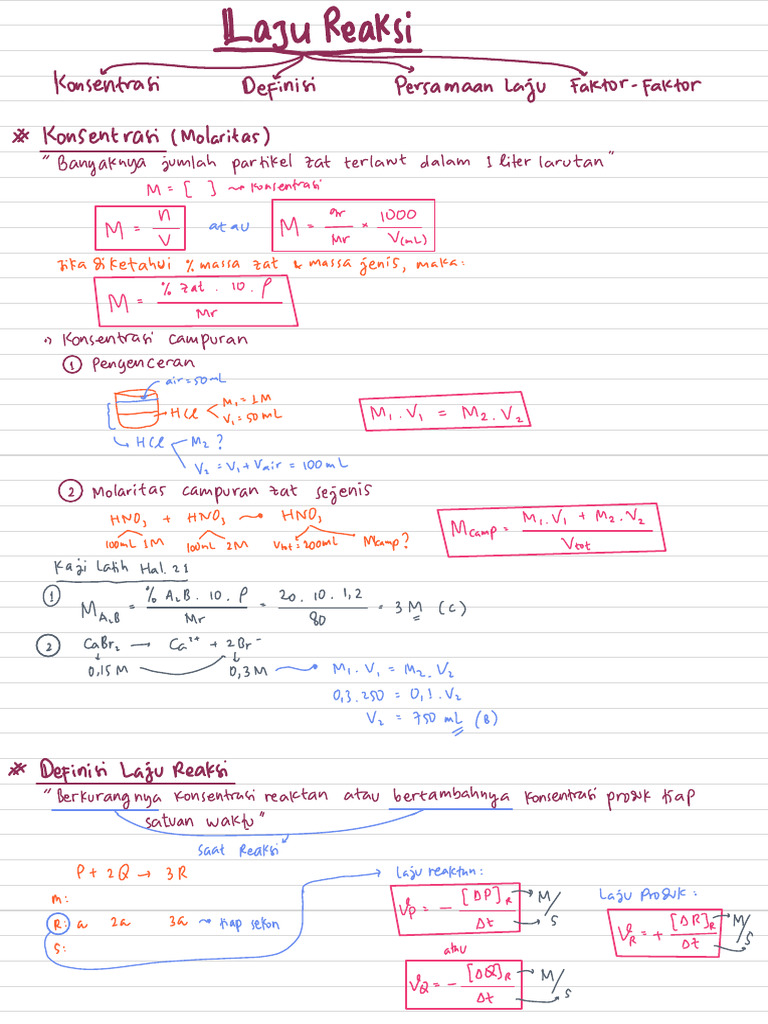 Laju Reaksi
Konsentrasi Definisi Persamaan Laju Faktor-Faktor
* Konsentrasi (Molaritas)
"Banyaknya jumlah partikel zat terlarut dalam 1 liter larutan"
M = [ ] → Konsentrasi
M = n/V atau M = gr/Mr × 1000/V(mL)
Jika diketahui % massa zat & massa jenis, maka:
M = % zat . 10 . ρ / Mr
•) Konsentrasi campuran
① Pengenceran
air = 50mL
HCl M₁ = 1M
V₁ = 50mL
M₁ . V₁ = M₂ . V₂
HCl M₂ ?
V₂ = V₁ + Vair = 100mL
② Molaritas campuran zat sejenis
HNO₃ + HNO₃ → HNO₃
100mL 1M 100mL 2M Vtot = 200mL Mcamp?
Mcamp = M₁.V₁ + M₂.V₂ / Vtot
Kaji Latih Hal. 21
① M A₂B = % A₂B . 10 . ρ / Mr = 20 . 10 . 1,2 / 80 = 3 M (C)
② CaBr₂ → Ca²⁺ + 2Br⁻
0,15M 0,3M → M₁ . V₁ = M₂ . V₂
0,3 . 250 = 0,1 . V₂
V₂ = 750 mL (B)
* Definisi Laju Reaksi
"Berkurangnya konsentrasi reaktan atau bertambahnya konsentrasi produk tiap
satuan waktu"
saat Reaksi
P + 2Q → 3R
m:
R: a 2a 3a → tiap sekon
S:
laju reaktan:
vP = − [ΔP]R / Δt → M/s
atau
vQ = − [ΔQ]R / Δt → M/s
Laju Produk:
vR = + [ΔR]R / Δt → M/s